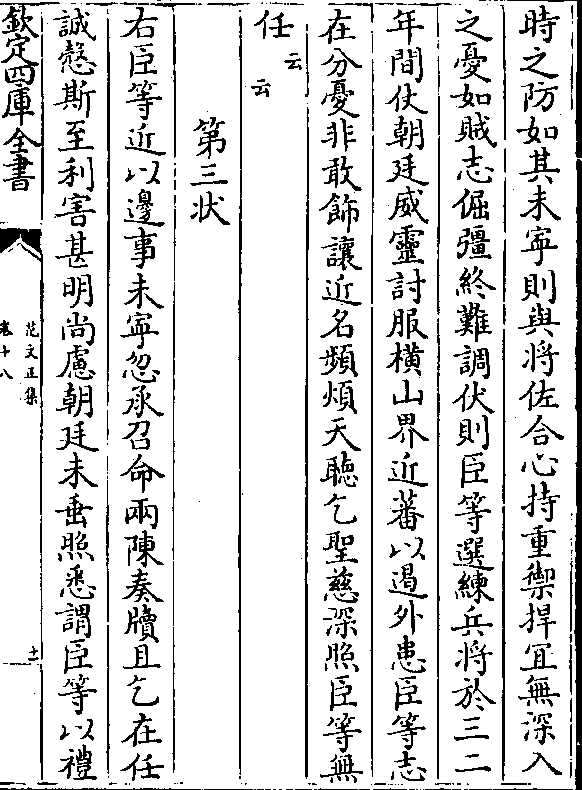 時之防如其未寜則與將佐合心持重禦捍冝無深入
之憂如賊志倔彊終難調伏則臣等選練兵將於三二
年間仗朝廷威靈討服横山界近蕃以遏外患臣等志
在分憂非敢飾讓近名頻煩天聽乞聖慈深照臣等無
任云云
第三狀
右臣等近以邊事未寜忽承召命兩陳奏牘且乞在任
誠慤斯至利害甚明尚慮朝廷未垂照悉謂臣等以禮
欽定四庫全書
范文正集
卷十八
十一